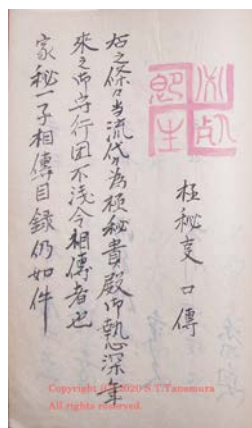 極秘変 口傳
右之條々当流代々為極秘貴殿御執心深年
来之御守行因不浅令相傳者也
家秘一子相傳目録仍如件
Copyright (C) 2020 S.T.Tanemura
All rights reserved.